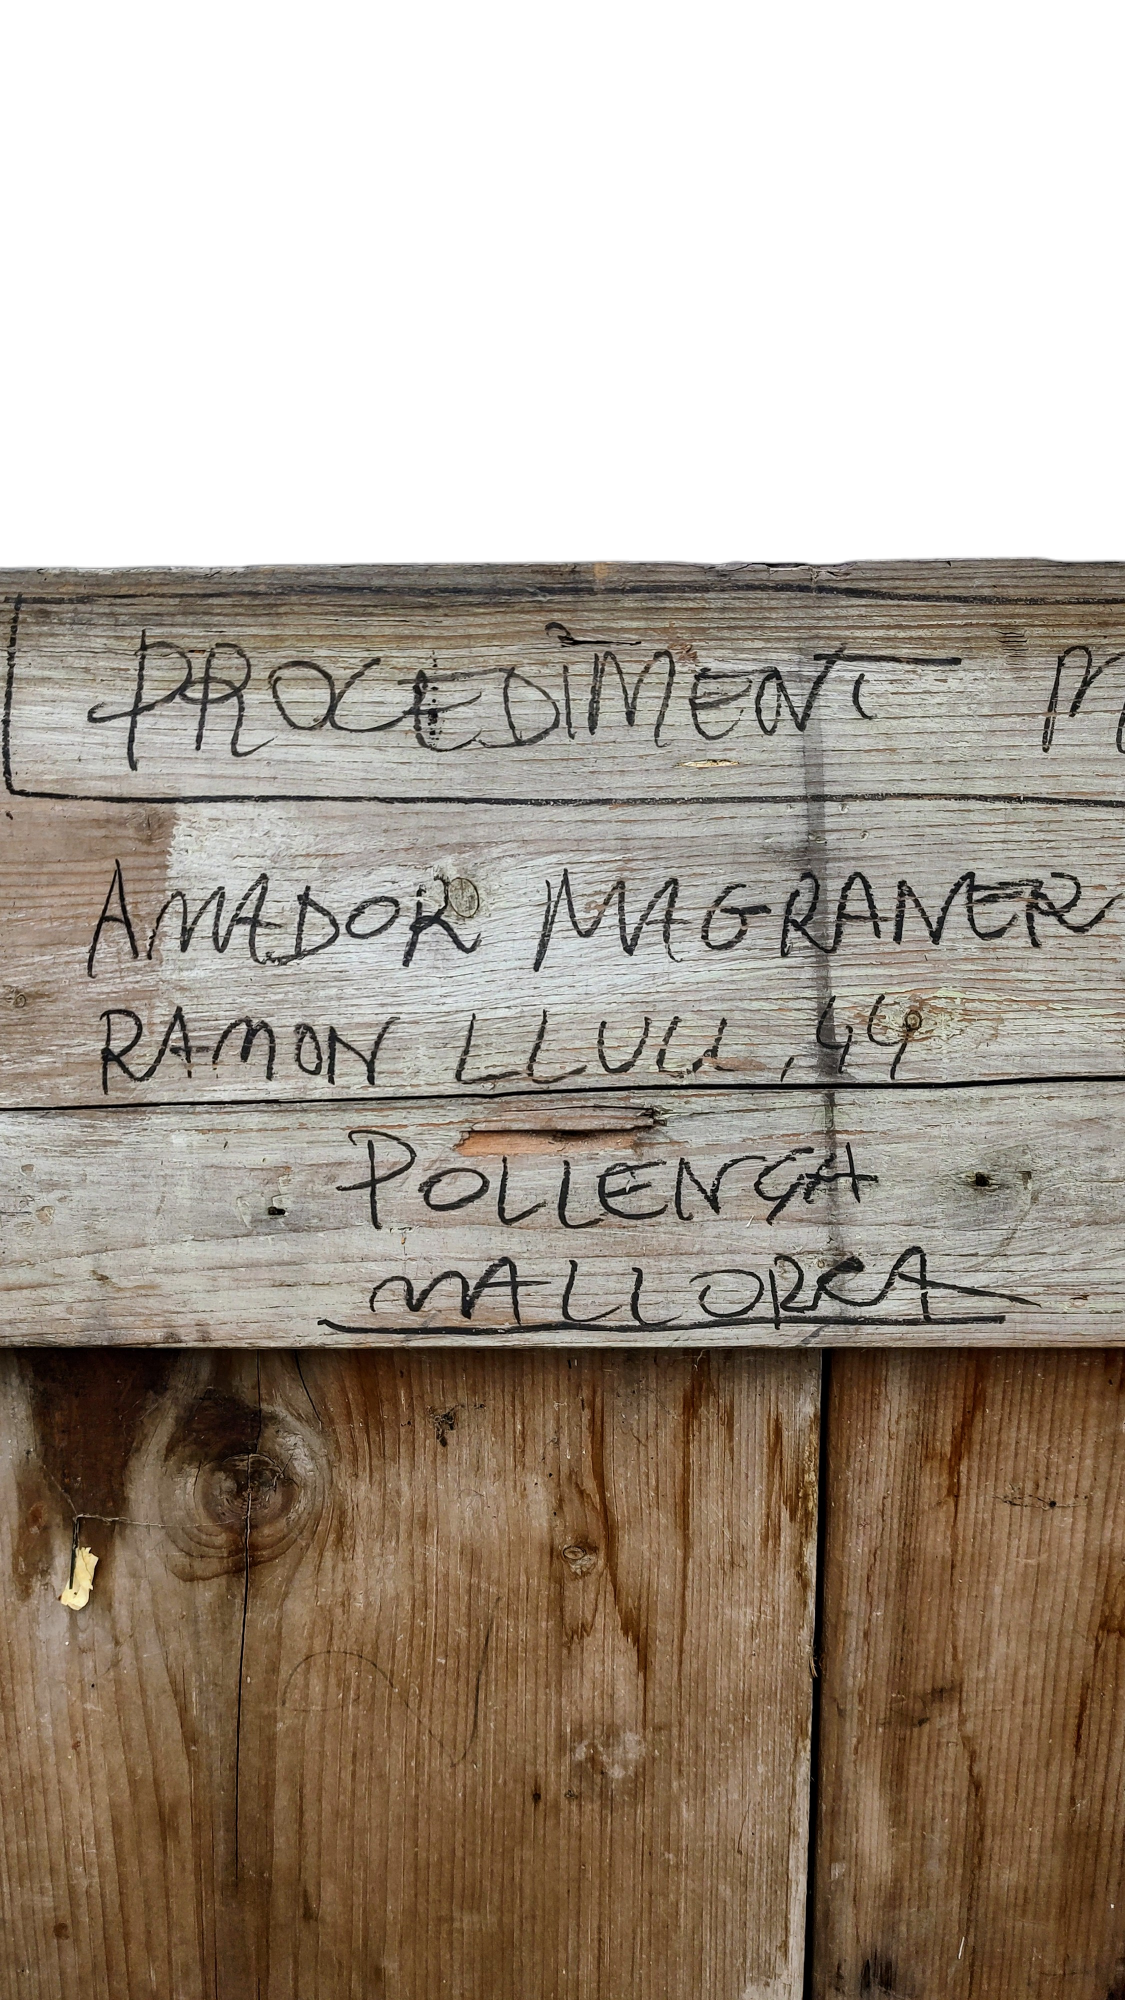 PROCEDIMENT M
AMADOR MAGRANER
RAMON LLULL, 44
POLLENÇA
MALLORCA